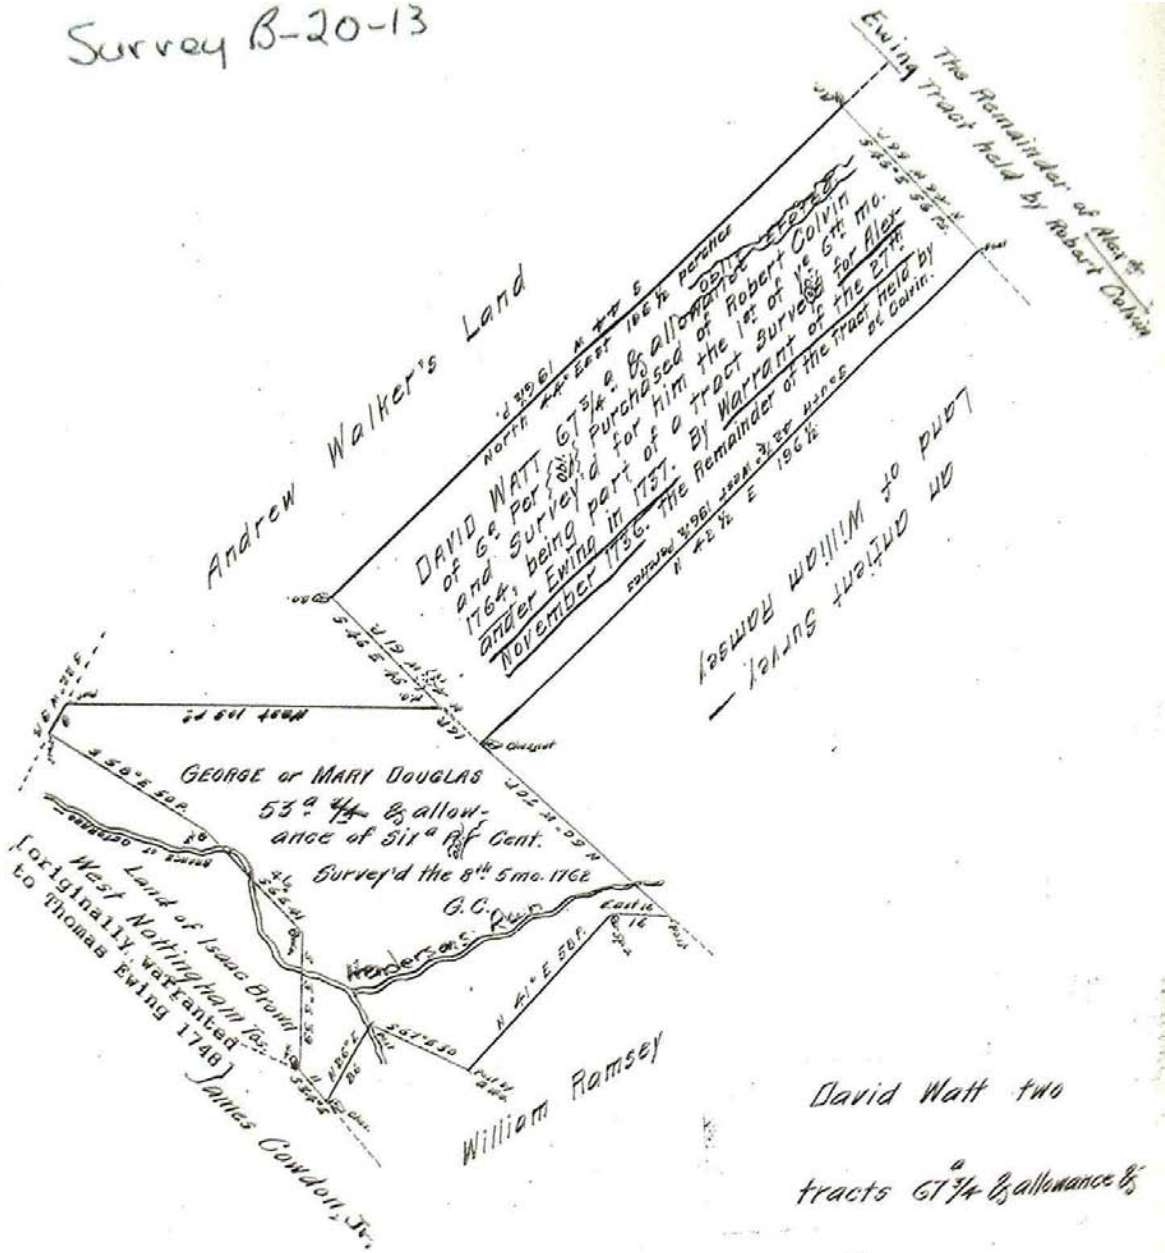 Survey B-20-13
The Remainder of Alex dr
Ewing Tract held by Robert Colvin
Andrew Walker's Land
S 44 W 196½ P.
North 44° East 196½ perches
S 46° E 56 Ps.
N 46 W 66 P.
Post
DAVID WATT 67 a ¾ & allowance
of 6 a Per Purchased of Robert Colvin
and Survey'd for him the 1st of ye 6th mo.
1764, being part of a tract Survey'd for Alex-
ander Ewing in 1737. By Warrant of the 27th
November 1736. the Remainder of the Tract held by
Colvin.
South 42½° West 196½ Perches
N 42½ E 196½
an antient Survey
Land of William Ramsey
S 46 E 45 Ps.
W 61 P.
16 P.
Chesnut
West 109 Ps
N 50° W 70 P.
S 58° E 50 P.
GEORGE or MARY DOUGLAS
53 a ¾ & allow-
ance of Six a Pr Cent.
Survey'd the 8th 5 mo. 1762
G.C.
Hendersons Run
East 16
16
Post
N 41° E 58 P.
S 67° E 30
Post
N 26° E
Land of Isaac Brown
West Nottingham Tos.
[originally warranted
to Thomas Ewing 1748]
James Cowdon, Jr.
William Ramsey
David Watt two
tracts 67 a ¾ & allowance &